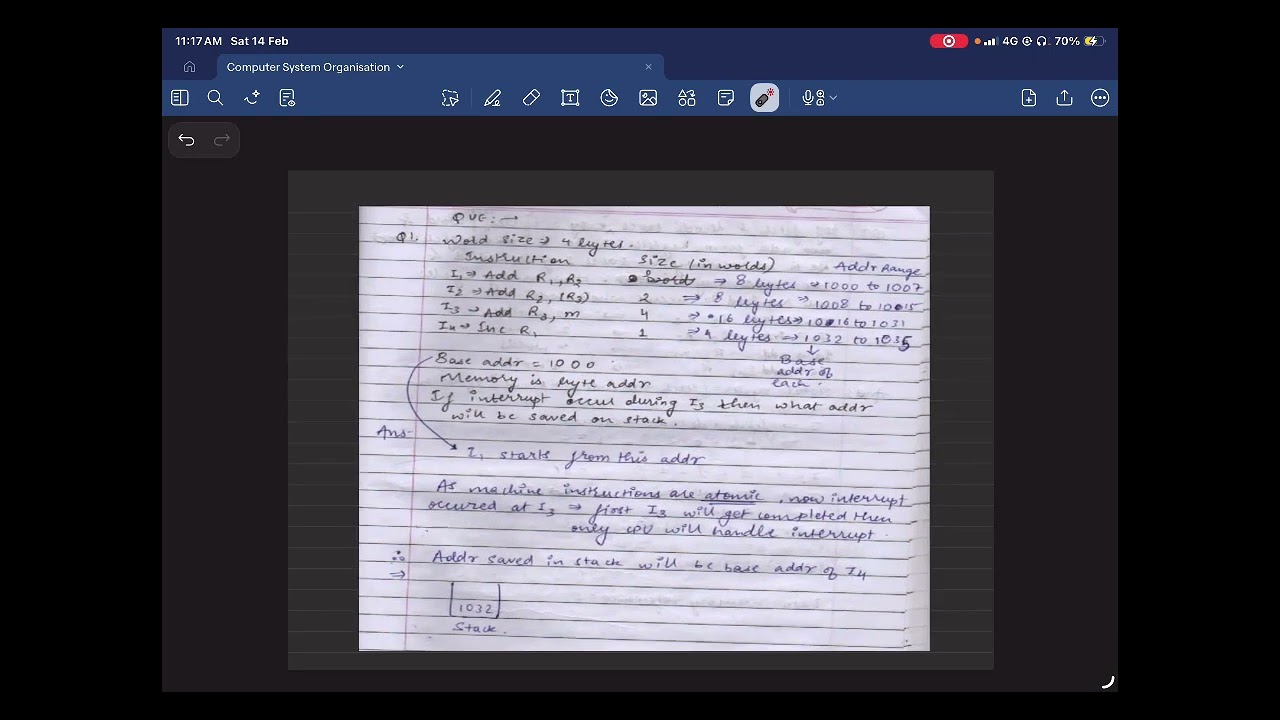 11:17 AM Sat 14 Feb
4G 70%
Computer System Organisation
QUE:→
Q1. Word size → 4 bytes.
Instruction Size (in words) Addr Range
I1 → Add R1, R2 ⇒ 8 bytes → 1000 to 1007
I2 → Add R2, (R3) 2 ⇒ 8 bytes → 1008 to 1015
I3 → Add R3, m 4 → 16 bytes → 1016 to 1031
I4 → Inc R1 1 → 4 bytes ⇒ 1032 to 1035
Base addr = 1000
Base
addr of
each.
Memory is byte addr
If interrupt occur during I3 then what addr
will be saved on stack.
Ans-
I1 starts from this addr
As machine instructions are atomic, now interrupt
occured at I3 → first I3 will get completed then
only CPU will handle interrupt.
∴ Addr saved in stack will be base addr of I4
⇒
1032
Stack.